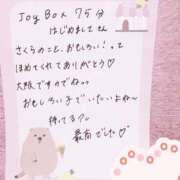 Joy Box 75分
はじめまして さん
さくらのこと、おもしろい！って
ほめてくれてありがとう♡
大阪ですのでねぃぃ
おもしろい子でいたいよね〜
待ってるワ
最高でした♡